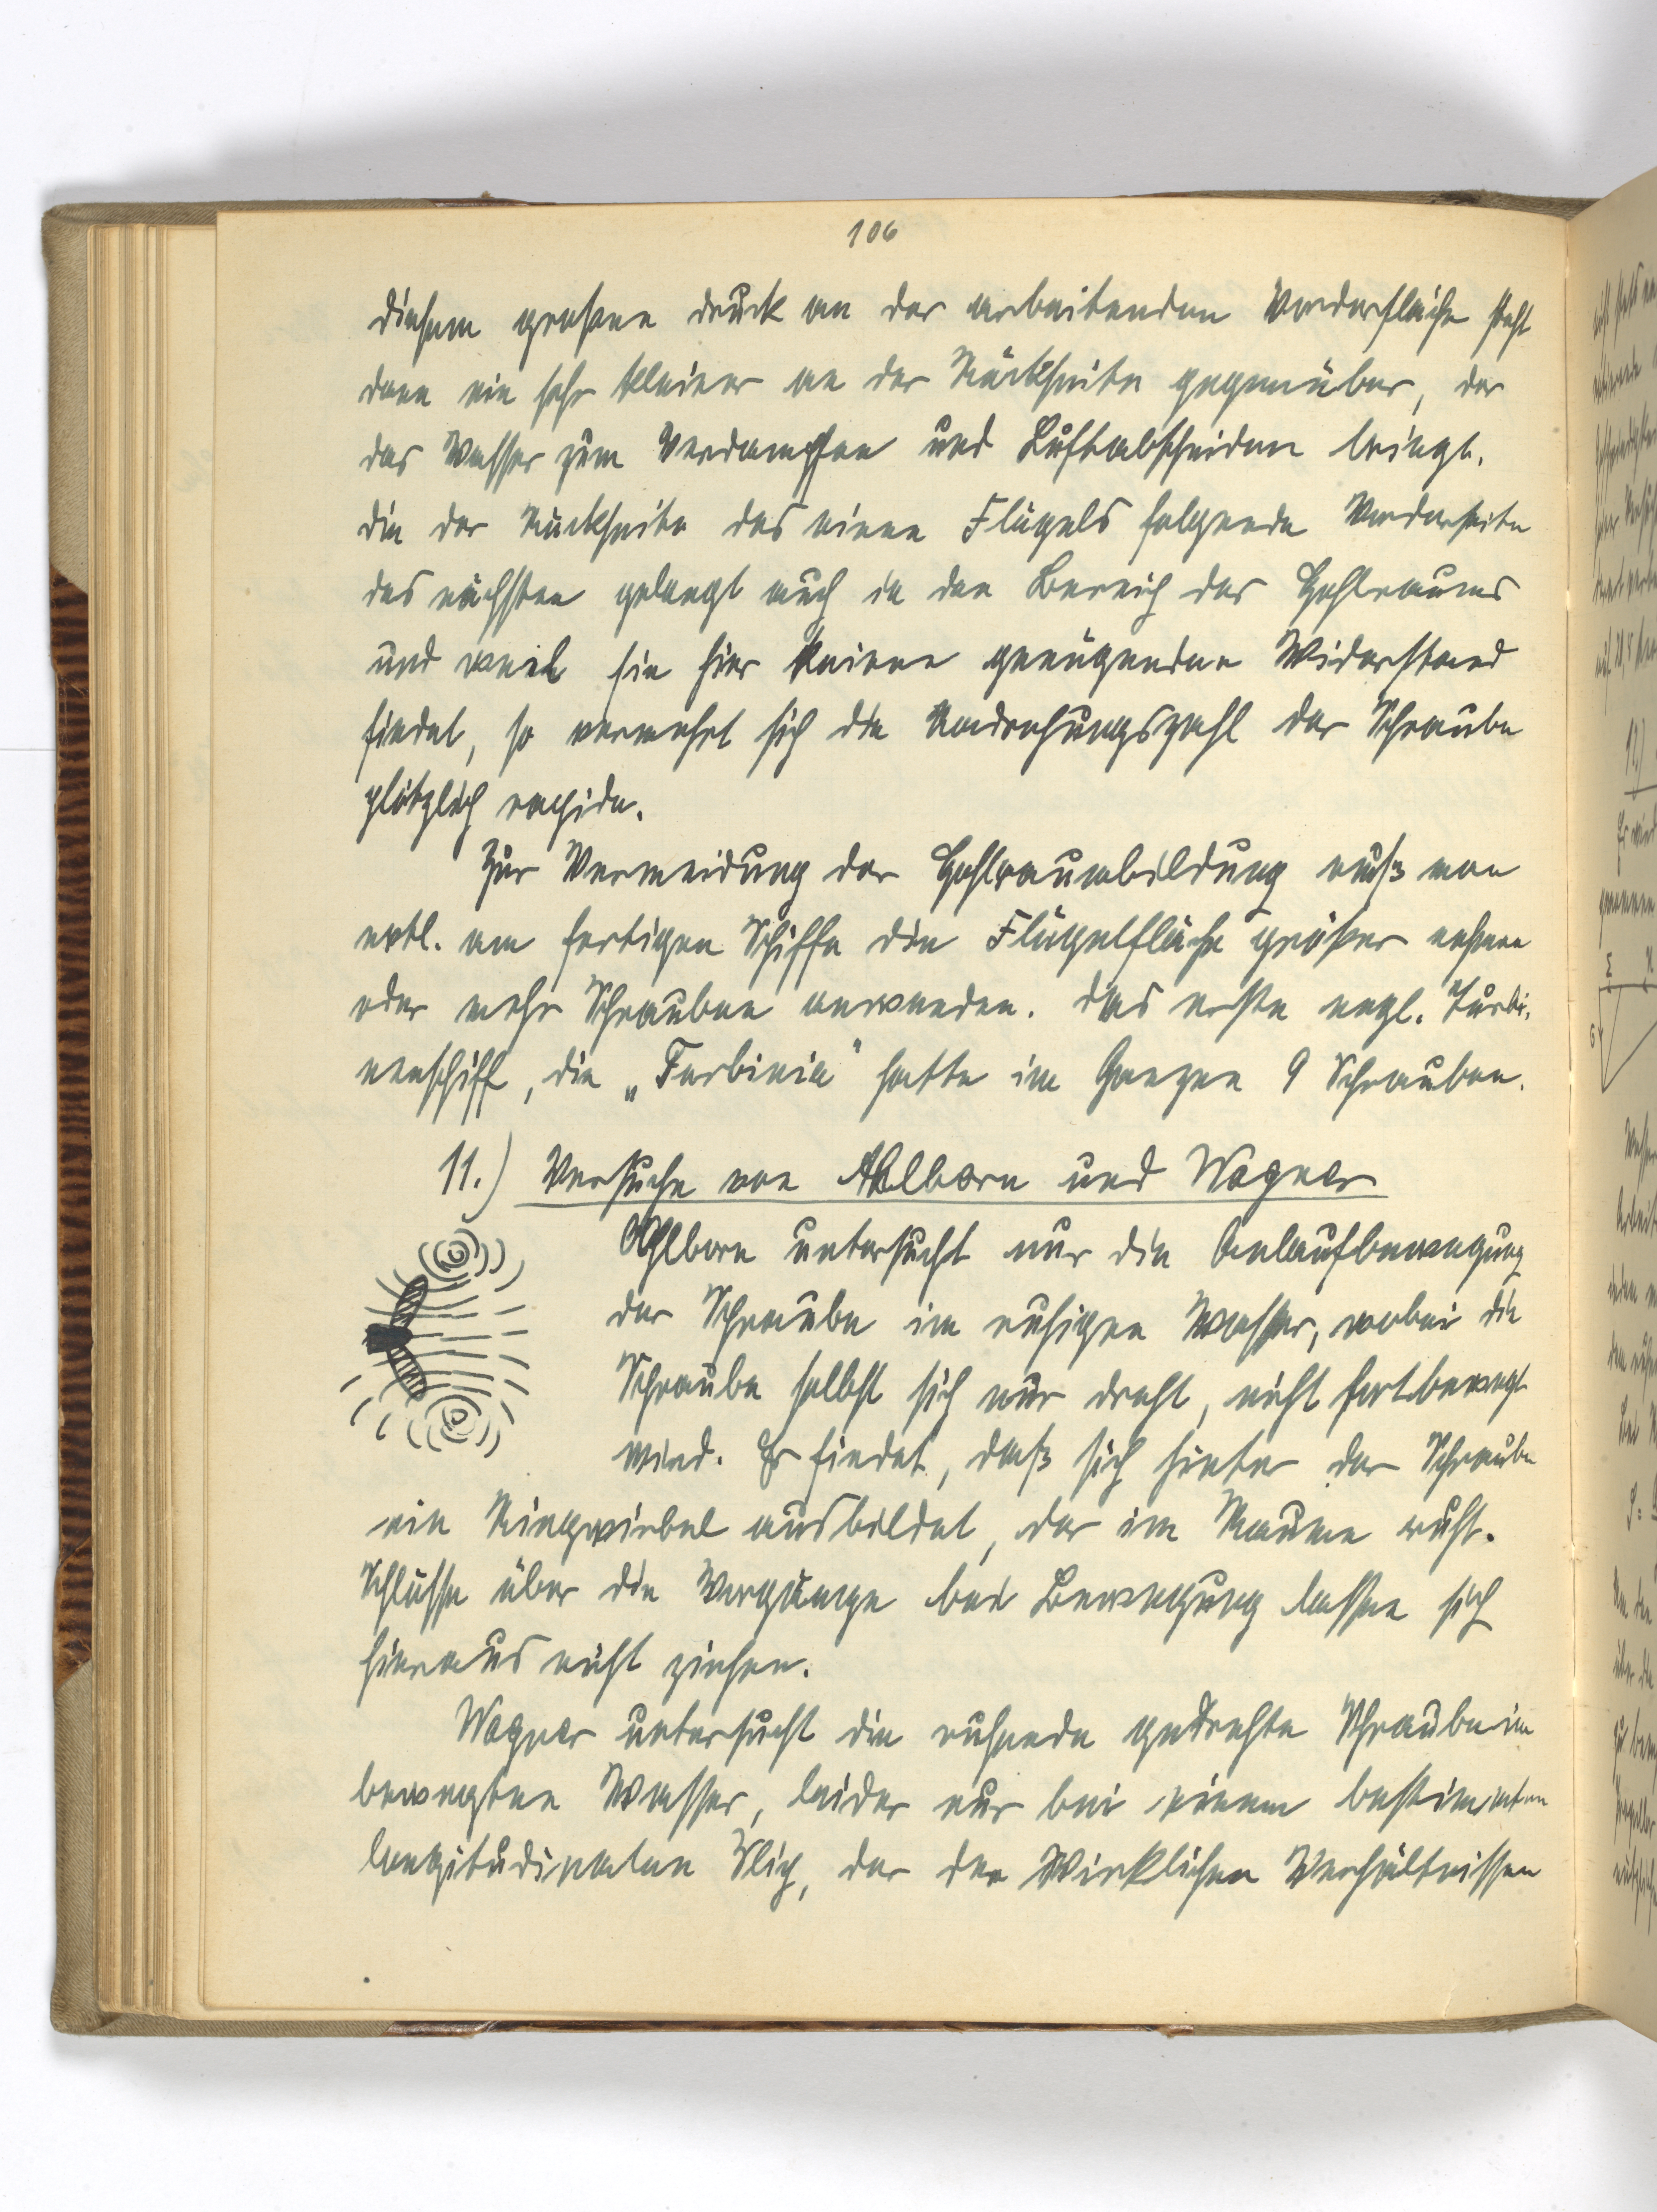 106
diesem grossen druck an der arbeitenden Vorderfläche steht
dann ein sehr kleiner an der Rückseite gegenüber, der
das Wasser zum Verdampfen und Luftabscheiden bringt.
die der Rückseite des einen Flügels folgende Vorderseite
des nächsten gelangt auch in den Bereich des Hohlraums
und weil sie hier keinen genügenden Widerstand
findet, so vermehrt sich die Umdrehungszahl der Schraube
plötzlich rapide.
Zur Vermeidung der Hohlraumbildung muß man
evtl. am fertigen Schiffe die Flügelfläche größer nehmen
oder mehr Schrauben anwenden. das erste engl. Turbi-
nenschiff, die „Turbinia" hatte im Ganzen 9 Schrauben.
11.) Versuche von Ahlborn und Wagner
Ahlborn untersucht nur die Anlaufbewegung
der Schraube im ruhigen Wasser, wobei die
Schraube selbst sich nur dreht, nicht fortbewegt
wird. Er findet, daß sich hinter der Schraube
ein Ringwirbel ausbildet, der im Raume ruht.
Schlüsse über die Vorgänge bei Bewegung lassen sich
hieraus nicht ziehen.
Wagner untersucht die ruhende gedrehte Schraube im
bewegten Wasser, leider nur bei einem bestimmten
longitudinalen Slip, der den Wirklichen Verhältnissen